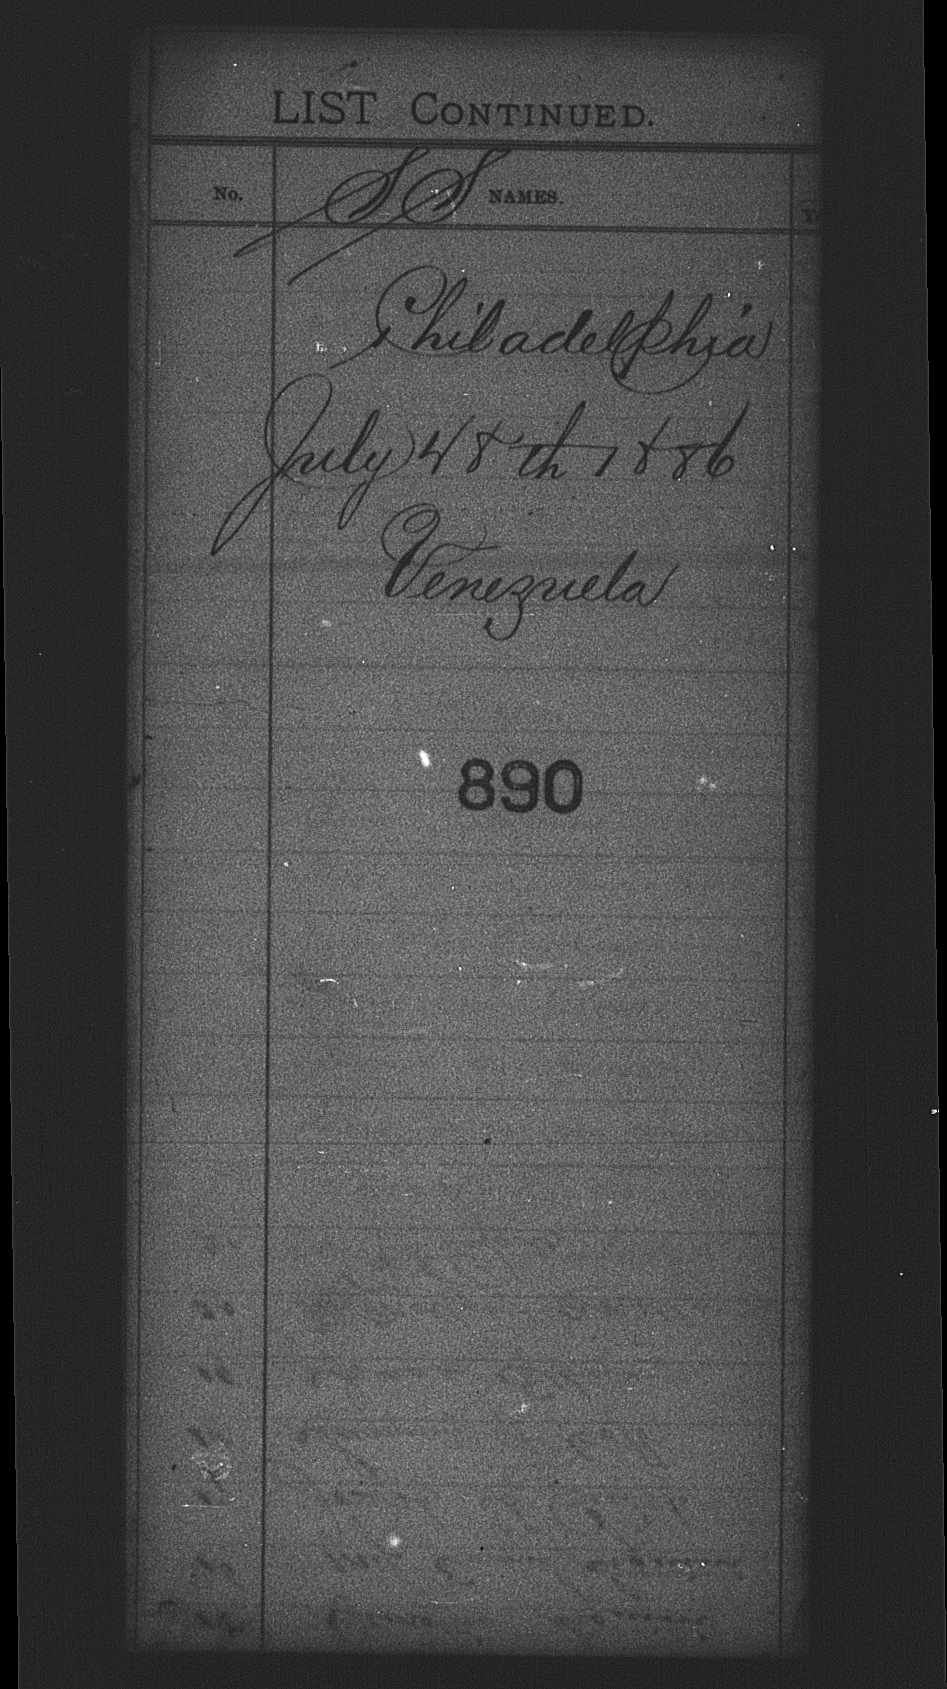 LIST CONTINUED.
No. SS NAMES.
Philadelphia
July 48th 1886
Venezuela
890